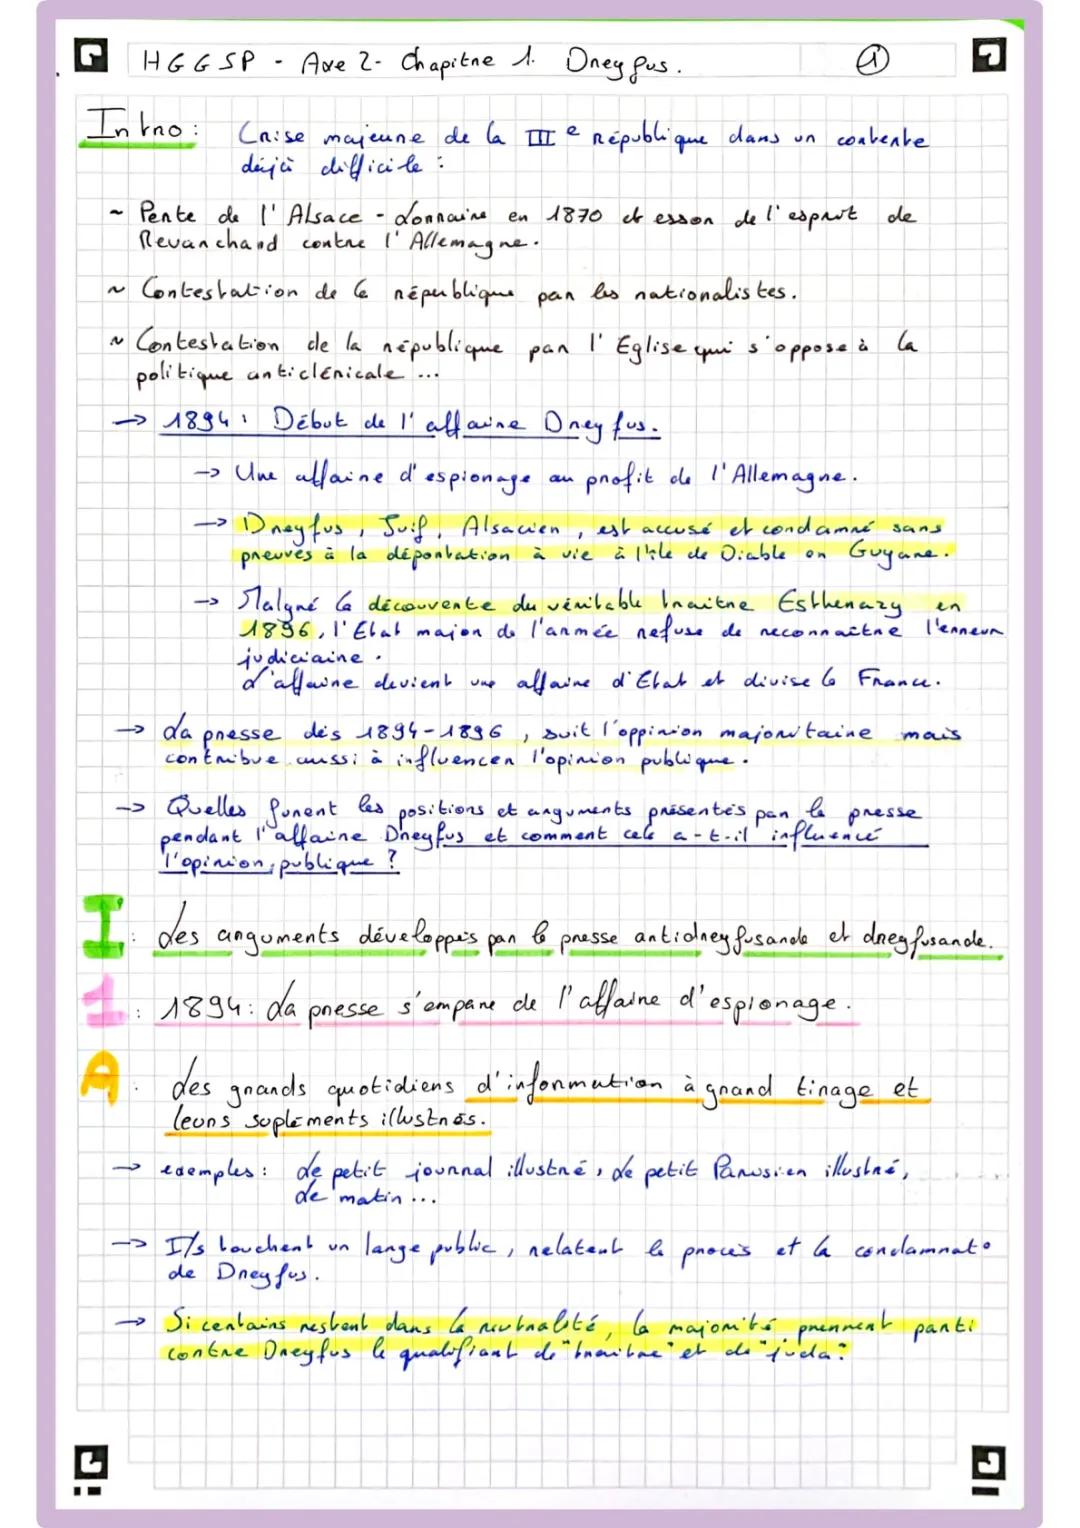 HGGSP - Axe 2- Chapitre 1. Dreyfus. 1
Intro: Crise majeure de la IIIe République dans un contexte
déjà difficile :
~ Perte de l'Alsace - Lorraine en 1870 et essor de l'esprit de
Revanchard contre l'Allemagne.
~ Contestation de la république par les nationalistes.
~ Contestation de la république par l'Eglise qui s'oppose à la
politique anticléricale ...
→ 1894 : Début de l'affaire Dreyfus.
→ Une affaire d'espionage au profit de l'Allemagne.
→ Dreyfus, Juif, Alsacien, est accusé et condamné sans
preuves à la déportation à vie à l'île de Diable en Guyane.
→ Malgré la découverte du véritable traitre Estherazy en
1896, l'Etat major de l'armée refuse de reconnaître l'erreur
judiciaire.
L'affaire devient une affaire d'Etat et divise la France.
→ La presse dès 1894-1896, suit l'oppinion majoritaire mais
contribue aussi à influencer l'opinion publique.
→ Quelles furent les positions et arguments présentés par la presse
pendant l'affaire Dreyfus et comment cela a-t-il influencé
l'opinion publique ?
I : Les arguments développés par la presse antidreyfusarde et dreyfusarde.
1 : 1894: La presse s'empare de l'affaire d'espionage.
A : Les grands quotidiens d'information à grand tirage et
leurs supléments illustrés.
→ exemples : Le petit journal illustré, Le petit Parisien illustré,
Le matin ...
→ Ils touchent un large public, relatent le procès et la condamnat°
de Dreyfus.
→ Si certains restent dans la neutralité, la majorité prennent parti
contre Dreyfus le qualifiant de "traitre" et de "juda".